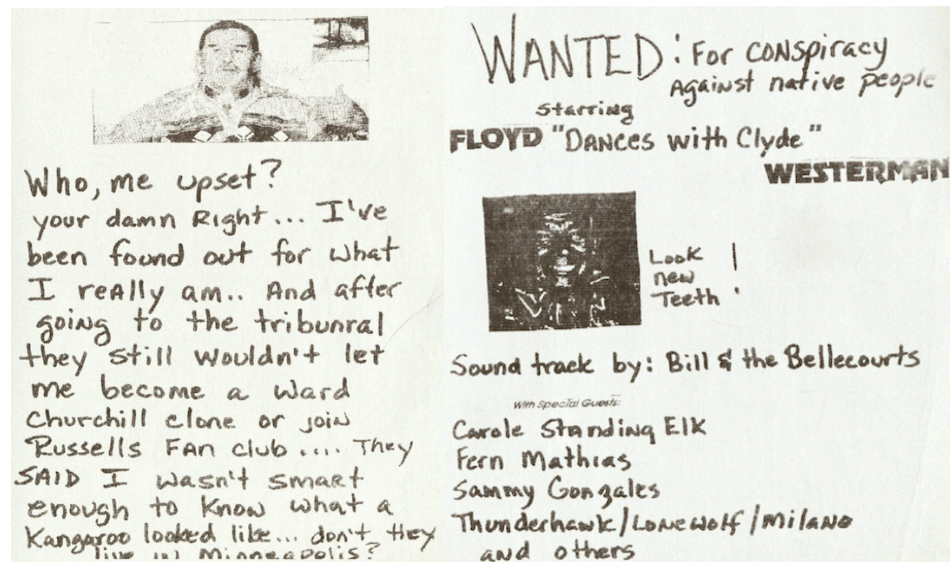 Who, me upset?
your damn Right... I've
been found out for what
I really am.. And after
going to the tribunral
they still wouldn't let
me become a Ward
Churchill clone or join
Russells Fan club .... They
SAID I wasn't smart
enough to know what a
Kangaroo looked like... don't they
live in Minneapolis?
WANTED: For conspiracy
Against native people
starring
FLOYD "Dances with Clyde"
WESTERMAN
Look
new
Teeth !
Sound track by: Bill & the Bellecourts
With Special Guests:
Carole Standing Elk
Fern Mathias
Sammy Gonzales
Thunderhawk/Lonewolf/Milano
and others